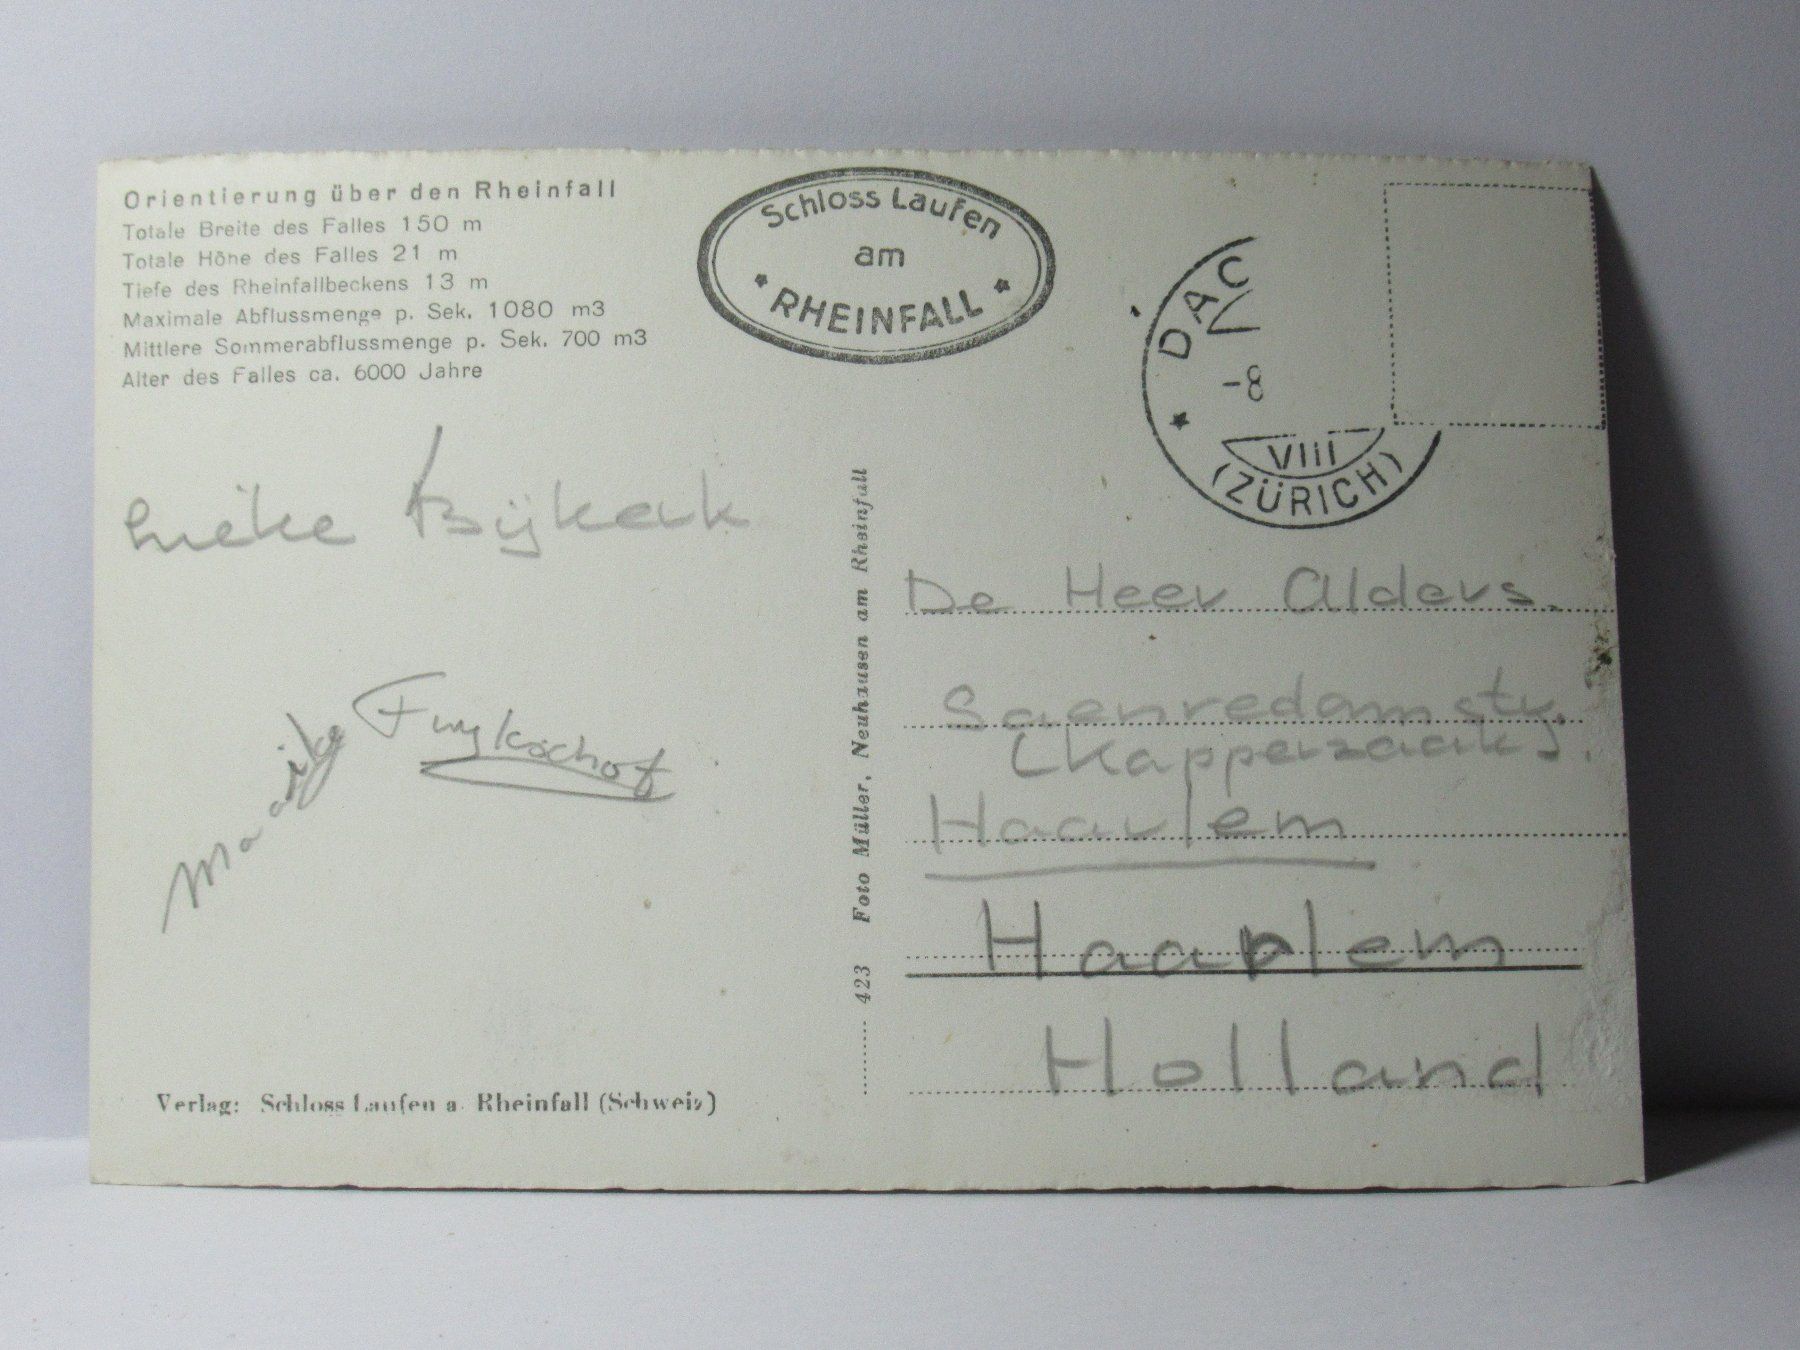 Orientierung über den Rheinfall
Totale Breite des Falles 150 m
Totale Höhe des Falles 21 m
Tiefe des Rheinfallbeckens 13 m
Maximale Abflussmenge p. Sek. 1080 m3
Mittlere Sommerabflussmenge p. Sek. 700 m3
Alter des Falles ca. 6000 Jahre
Schloss Laufen
am
RHEINFALL
DAC
-8
VIII
(ZÜRICH)
Lieke Bijkerk
Marijke Fuykschot
423 Foto Müller, Neuhausen am Rheinfall
De Heer Alders.
Saenredamstr.
(Kapperszaak).
Haarlem
Haarlem
Holland
Verlag: Schloss Laufen a. Rheinfall (Schweiz)